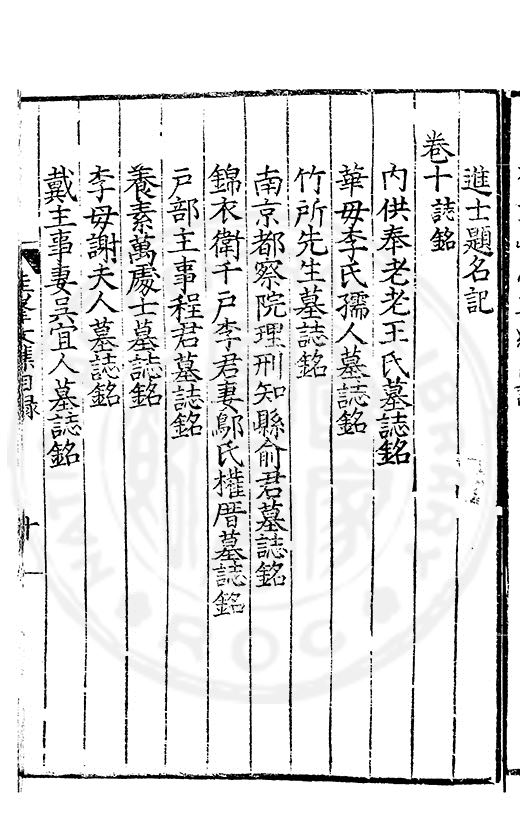 進士題名記
卷十 誌銘
內供奉老老王氏墓誌銘
華母李氏孺人墓誌銘
竹所先生墓誌銘
南京都察院理刑知縣俞君墓誌銘
錦衣衛千戶李君妻鄔氏權厝墓誌銘
戶部主事程君墓誌銘
養素萬處士墓誌銘
李母謝夫人墓誌銘
戴主事妻吳宜人墓誌銘
文集目録
十